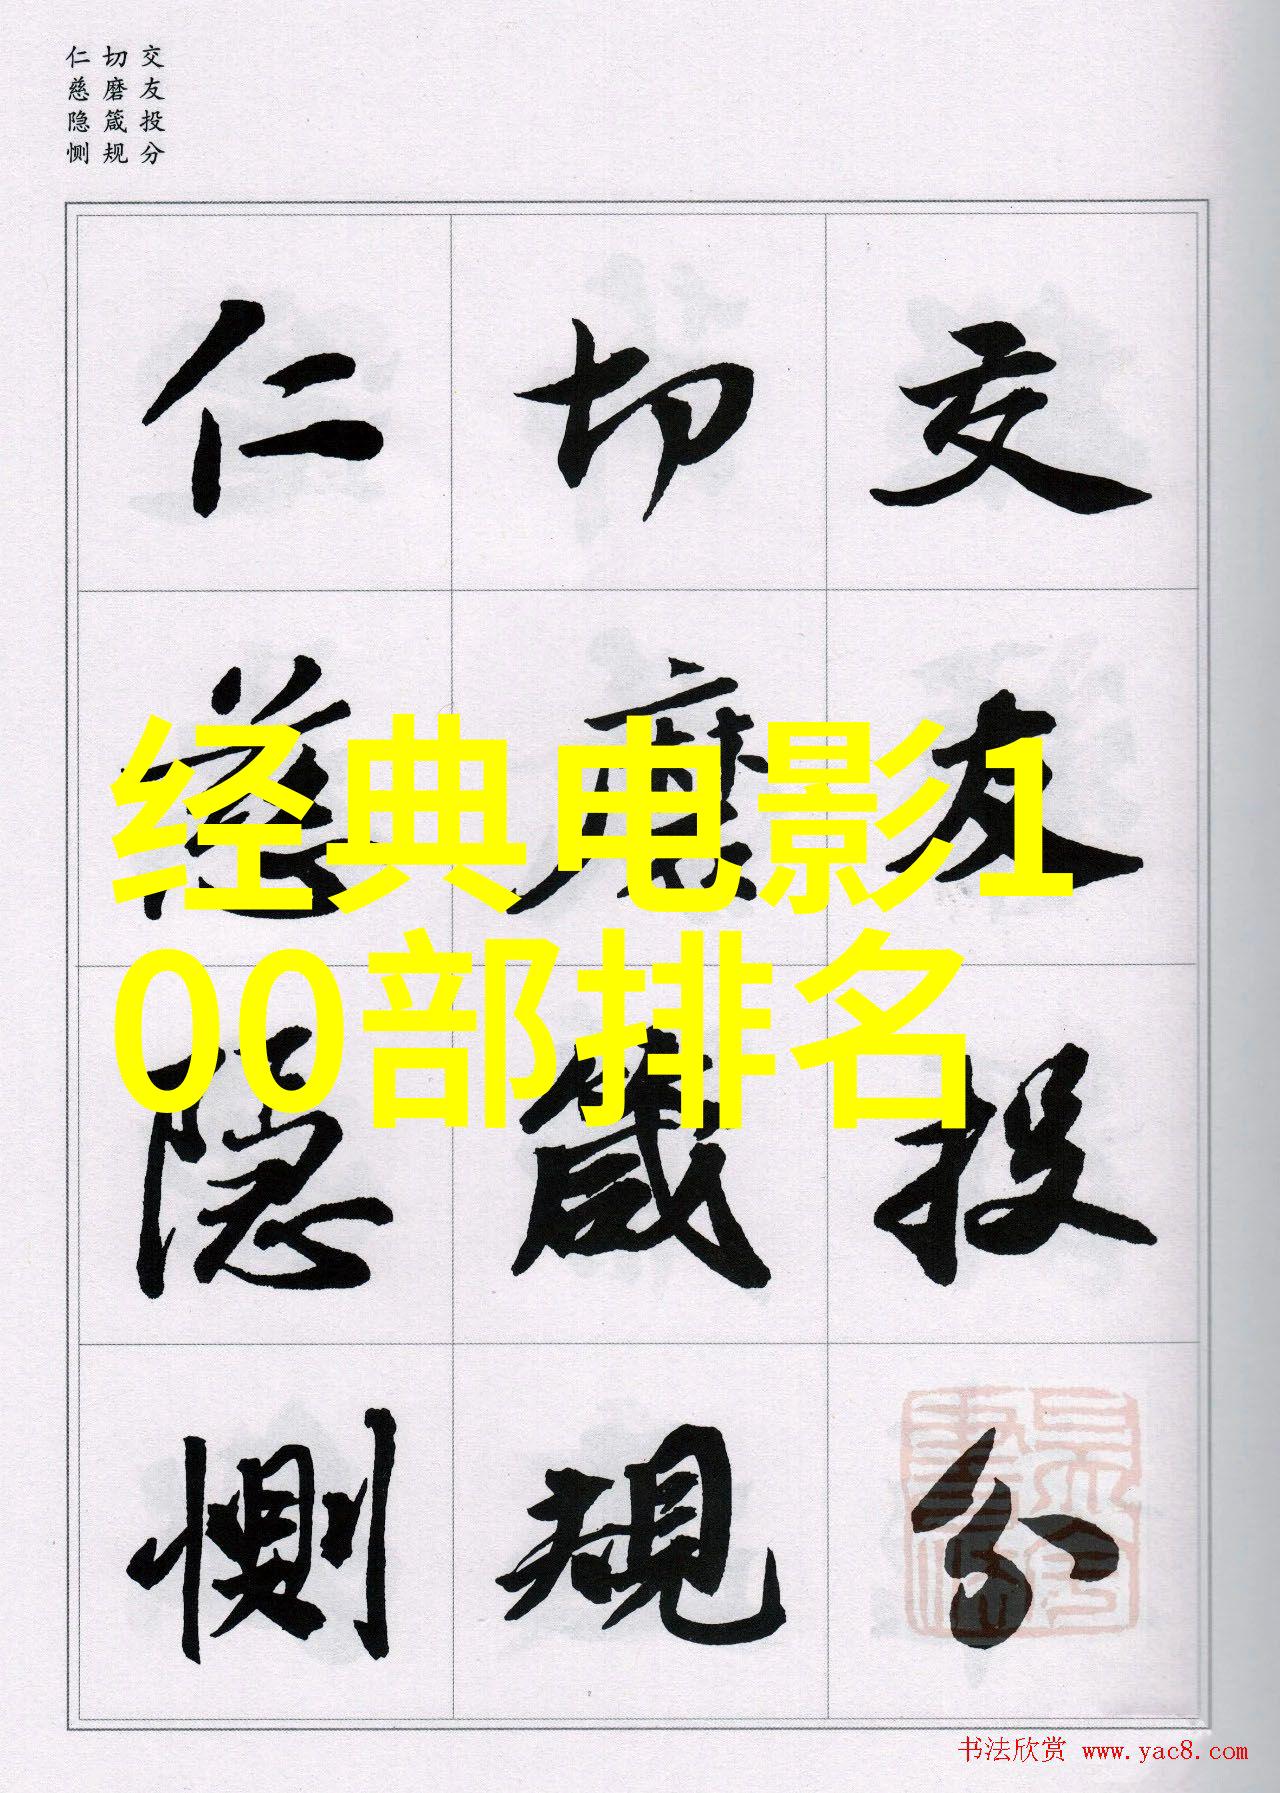 交友投分
切磨箴规
仁慈隐恻
交友投分
切磨箴规
仁慈隐恻
经典电影1
00部排名
书法欣赏 www.yac8.com